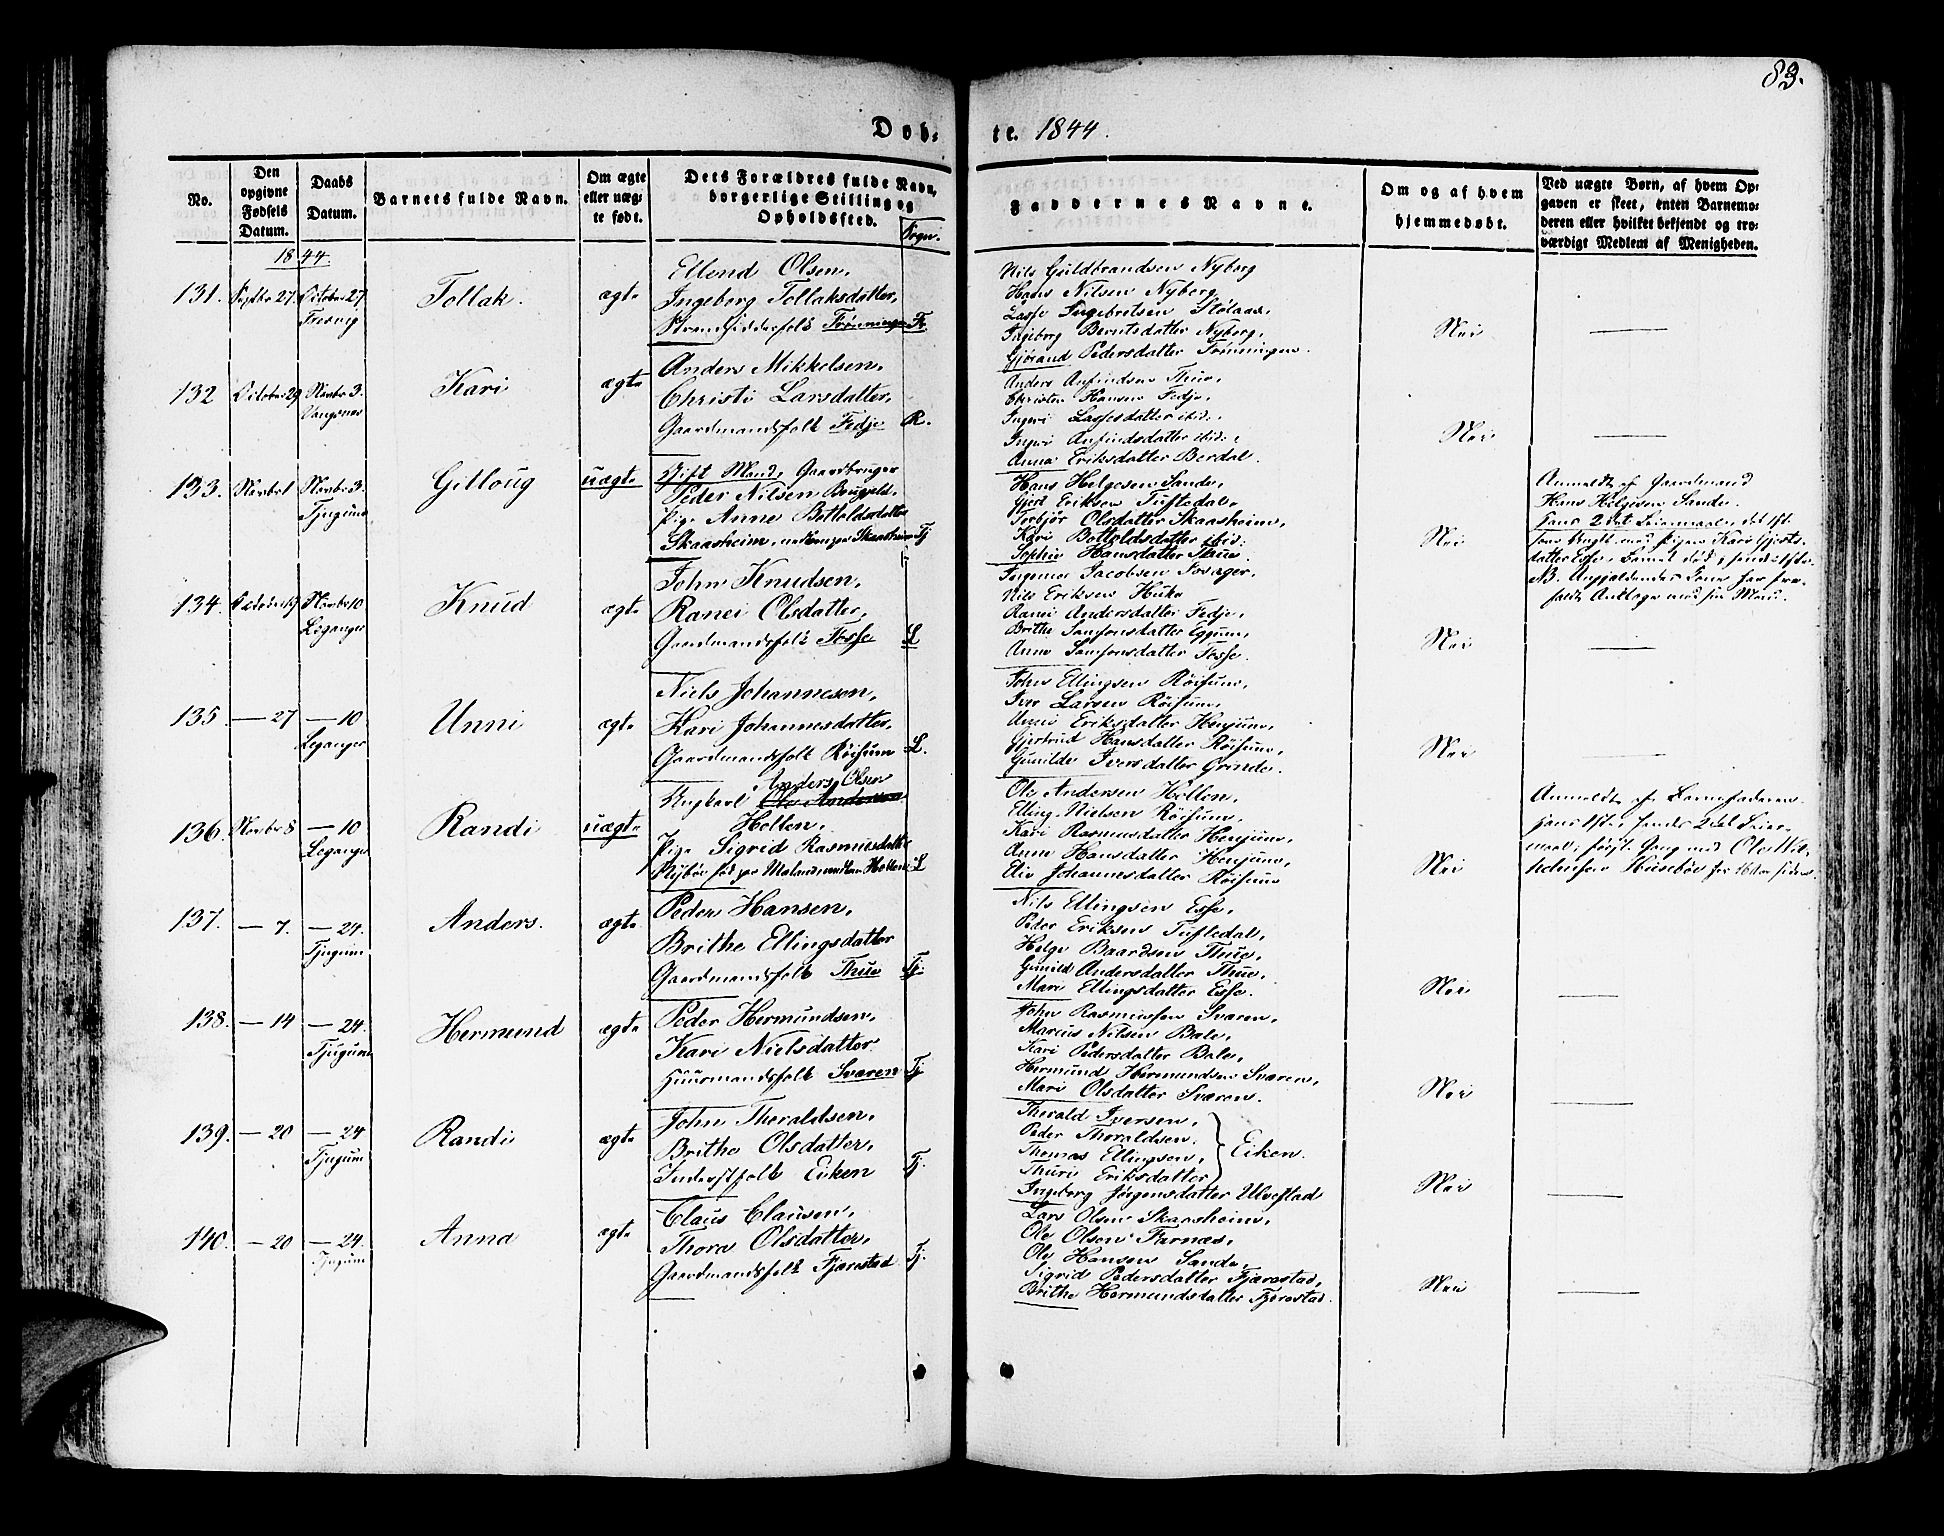 83.
Døb-
te. 1844.
No.
Den opgivne Fødsels Datum.
Daabs Datum.
Barnets fulde Navn.
Om ægte eller uægte født.
Dets Forældres fulde Navn, borgerlige Stilling og Opholdssted.
Sogn.
Faddernes Navne.
Om og af hvem hjemmedøbt.
Ved uægte Børn, af hvem Op-
gaven er skeet, enten Barnemo-
deren eller hvilket bekjendt og tro-
værdigt Medlem af Menigheden.
1844.
131. Septbr 27. October 27. Fresvig
Tollak.
ægte
Ellend Olsen,
Ingeborg Tollaksdatter,
Strandsidderfolk Trønningen Fr.
Nils Guldbrandsen Nyborg
Hans Nilsen Nyborg
Lasse Ingebretsen Stølaas.
Ingeborg Berntsdatter Nyborg.
Gjørand Pedersdatter Trønningen.
Nei
132 October 29 Novbr 3. Vangsnes
Kari
ægte
Anders Mikkelsen,
Christi Larsdatter,
Gaardmandsfolk Fedje R.
Anders Anfindsen Thue,
Christen Hansen Fedje,
Ingeri Lassesdatter ibid:,
Ingeri Anfindsdatter ibid:,
Anna Eriksdatter Berdal.
Nei
133. Novbr 1 Novbr 3. Tjugum
Gilloug
uægte
Gift Mand, Gaardbruger
Peder Nilsen
Pige Anne Botholdsdatter
Skaasheim, Tj
Hans Helgesen Sande,
Gjert Eriksen Tuftedal,
Torbjør Olsdatter Skaasheim,
Kari Botholdsdatter ibid:
Sophie Hansdatter Thue
Nei
Anmeldt af Gaardmand
Hans Helgesen Sande.
hans 2det Leiermaal, det 1ste
med Pigen Kari Gjerts-
datter Esse,
NB.
134. Novbr 10 Leganger
Knud
ægte
John Knudsen,
Ranei Olsdatter,
Gaardmandsfolk Fosse L
Ingemar Jacobsen
Nils Eriksen Huke
Ranei Andersdatter Fedje,
Brithe Samsonsdatter Eggum,
Anne Samsonsdatter Fosse.
Nei
135 — 27 — 10 Leganger
Unni
ægte
Niels Johannesen,
Kari Johannesdatter,
Gaardmandsfolk Röisum L.
John Ellingsen Röisum,
Iver Larsen Röisum,
Unni Eriksdatter Henjum,
Gjertrud Hansdatter Röisum,
Gunilde Iversdatter Grinde.
Nei
136. Novbr 8 — 10 Leganger
Randi
uægte
Ungkarl Anders Olsen
Holten,
Pige Sigrid Rasmusdatter
L
Ole Andersen Holten,
Elling Nielsen Röisum,
Kari Rasmusdatter Henjum,
Anne Hansdatter Henjum,
Eli Johannesdatter Röisum
Nei
Anmeldt af Barnefaderen.
hans 1ste, hendes 2det Leier-
maal, første Gang med Ole
Husebøe for 16 Aar siden.
137. — 7. — 24. Tjugum
Anders.
ægte
Peder Hansen,
Brithe Ellingsdatter
Gaardmandsfolk Thue Tj.
Nils Ellingsen Esse,
Peder Eriksen Tuftedal,
Helge Baardsen Thue,
Gunild Andersdatter Thue,
Mari Ellingsdatter Esse.
Nei
138. — 14 — 24. Tjugum
Hermund
ægte
Peder Hermundsen,
Kari Nielsdatter
Huusmandsfolk Svaren Tj
John Rasmussen Svaren,
Marcus Nilsen Bale,
Kari Pedersdatter Bale,
Hermund Hermundsen Svaren,
Mari Olsdatter Svaren.
Nei
139. — 20 — 24 Tjugum
Randi
ægte
John Thoraldsen,
Brithe Olsdatter,
Inderstfolk Eiken Tj.
Thorald Iversen,
Peder Thoraldsen,
Thomas Ellingsen,
Eiken.
Thuri Eriksdatter
Ingeborg Jørgensdatter Ulvestad
Nei
140. — 20 — 24. Tjugum
Anna
ægte
Claus Clausen,
Thora Olsdatter,
Gaardmandsfolk Fjærestad Tj.
Lars Olsen Skaasheim,
Ole Olsen Farnæs,
Ole Hansen Sande,
Sigrid Pedersdatter Fjærestad,
Brithe Hermundsdatter Fjærestad.
Nei